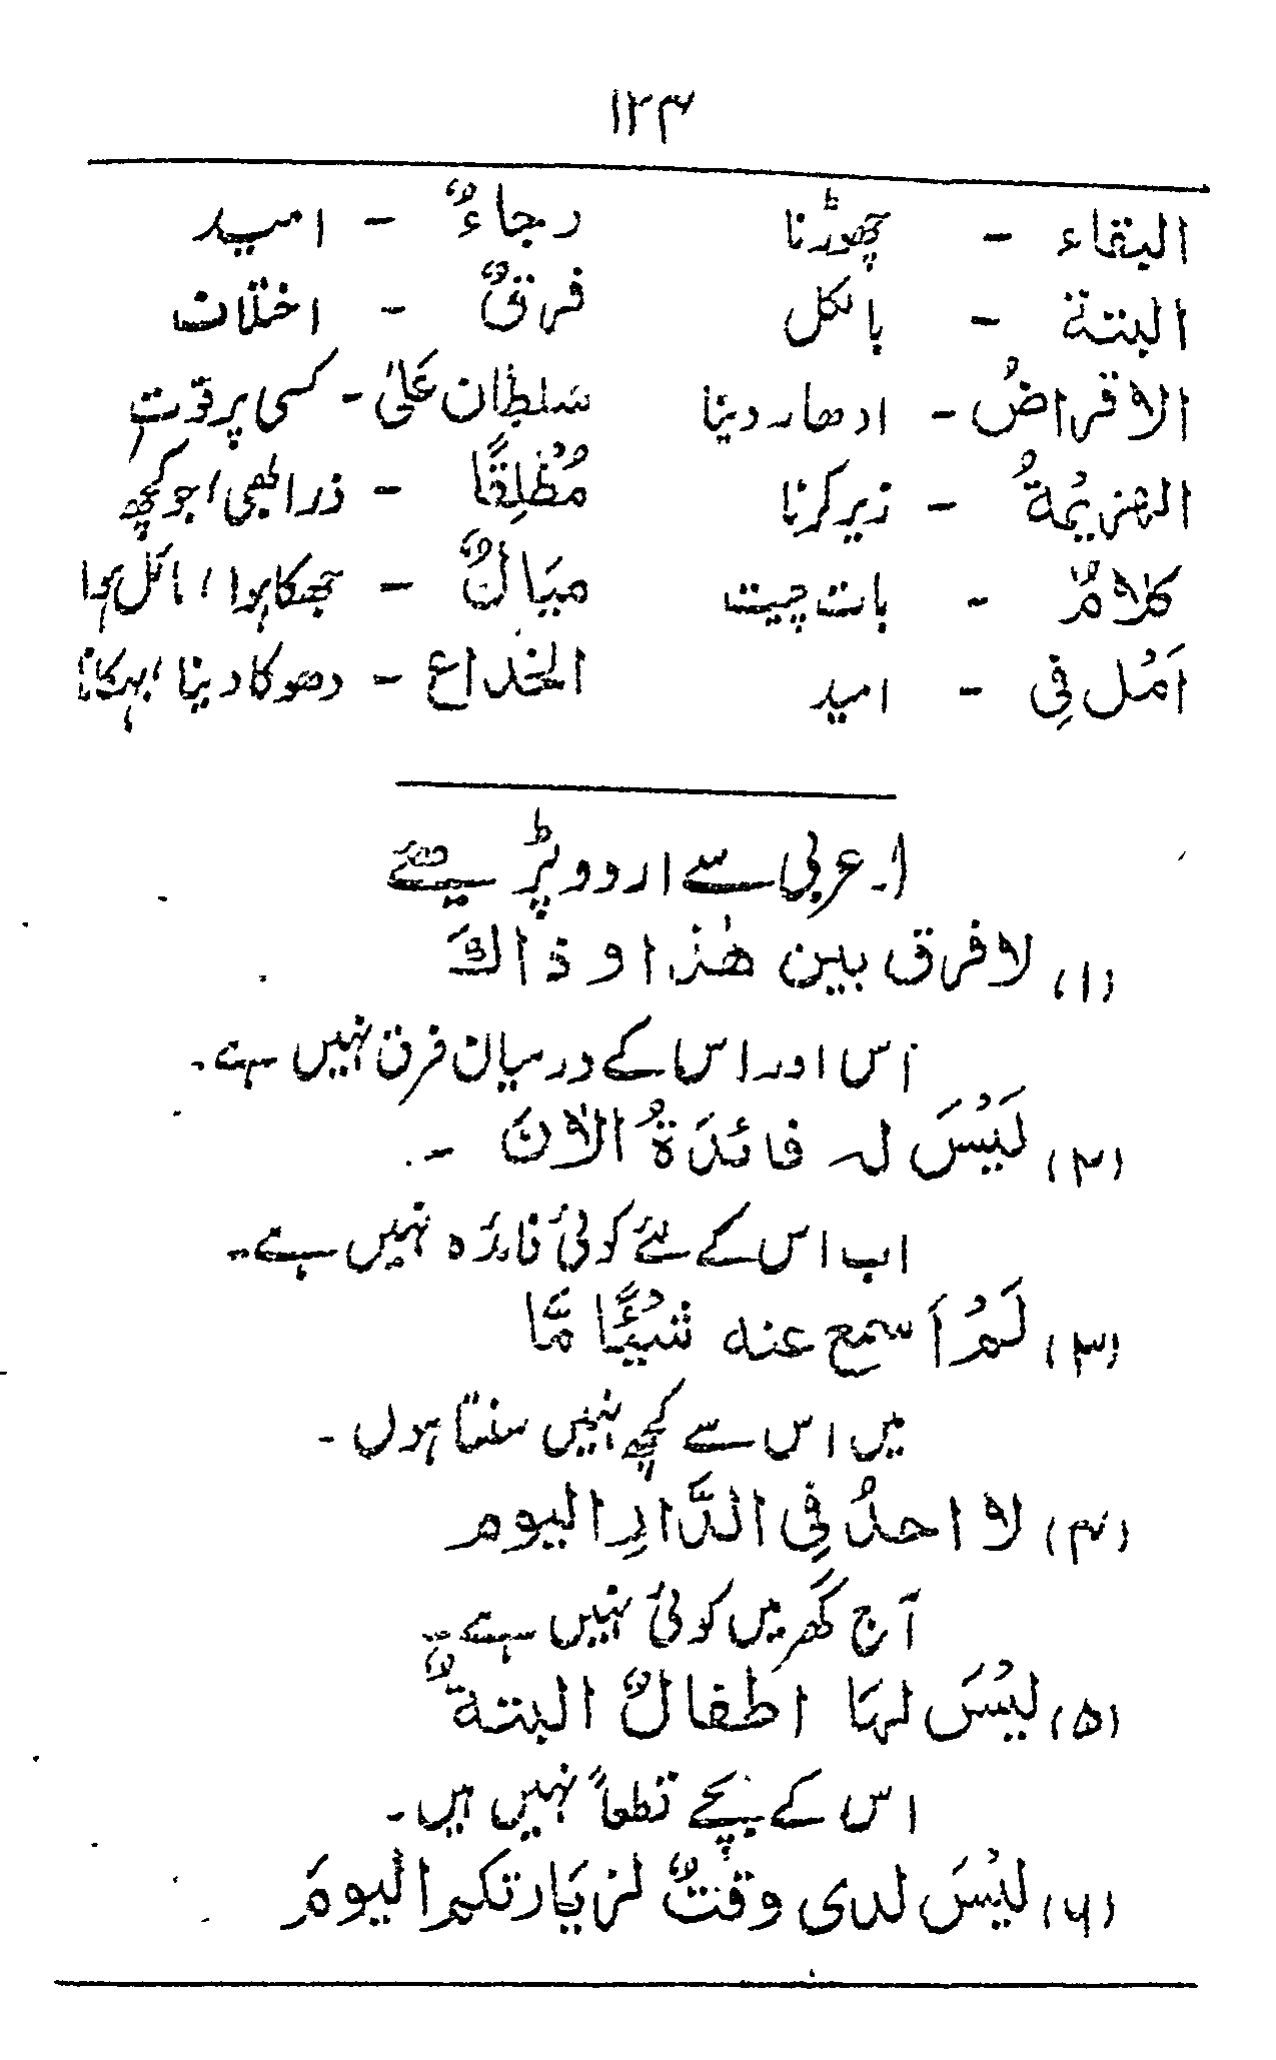 ۱۲۴
البقاء - چھوڑنا رجاءٌ - امید
البتة - بالکل فرقٌ - اختلاف
الاقراضُ - ادھار دینا سَلطان عَلیٰ - کسی پر قوّت
الھزیْمةُ - زیر کرنا مُطْلِقًا - ذرا بھی / جو کچھ
کلامٌ - بات چیت میَالٌ - جھکا ہوا / مائل ہوا
اَمْل فِی - امید الخْداع - دھوکا دینا / بہکانا
۱۔ عربی سے اردو پڑھیئے
(۱) لا فرق بین ھٰذا و ذاكَ
اس اور اس کے درمیان فرق نہیں ہے۔
(۲) لَیْسَ لہ فائدَةُ الاٰنَ ۔
اب اس کے لئے کوئی فائدہ نہیں ہے۔
(۳) لَمْ اَسمع عنه شیْئًا مَّا
میں اس سے کچھ نہیں سنتا ہوں۔
(۴) لا احدُ فِی الدَّارِ الیوم
آج گھر میں کوئی نہیں ہے۔
(۵) لیْسَ لہَا اطفالٌ البتةٌ
اس کے بچے قطعاً نہیں ہیں۔
(۶) لیْسَ لدی وقتٌ لزیَارتکم الیومَ